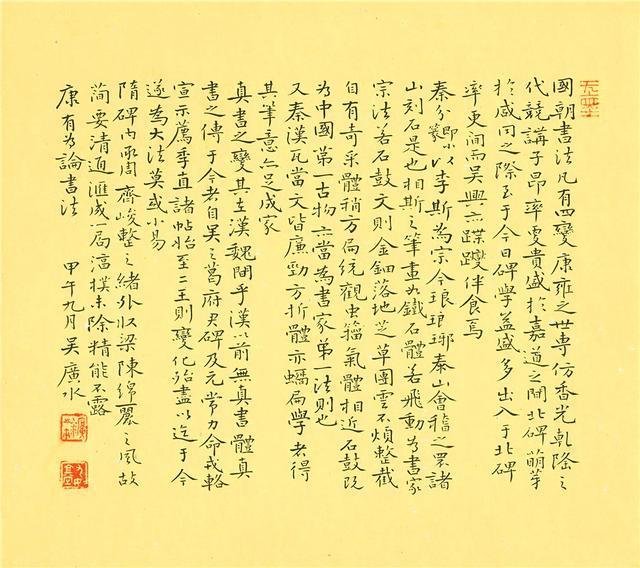 國朝書法凡有四變康雍之世專仿香光乹隆之
代競講子昂率更貴盛於嘉道之間北碑萌芽
於咸同之際至于今日碑學益盛多出入于北碑
率更间而吴興亦蹀躞伴食焉
秦分即小篆以李斯為宗今琅琊秦山會稽之罘諸
山刻石是也相斯之筆畫如鐵石體若飛動為書家
宗法若石鼓文則金鈿落地芝草團雲不煩整截
自有奇采體稍方扁統觀虫籀氣體相近石鼓既
為中國第一古物亦當為書家第一法則也
又秦漢瓦當文皆廉勁方折體亦蟠扁學者得
其筆意亦足成家
真書之變其在漢魏間乎漢以前無真書體真
書之傳于今者自吴之葛府君碑及元常力命戎輅
宣示薦季直諸帖始至二王則變化殆盡以迄于今
遂為大法莫或小易
隋碑内承周齊峻整之緒外收梁陳綿麗之風故
简要清通滙成一局湻樸未除精能不露
康有為論書法 甲午九月吴廣水